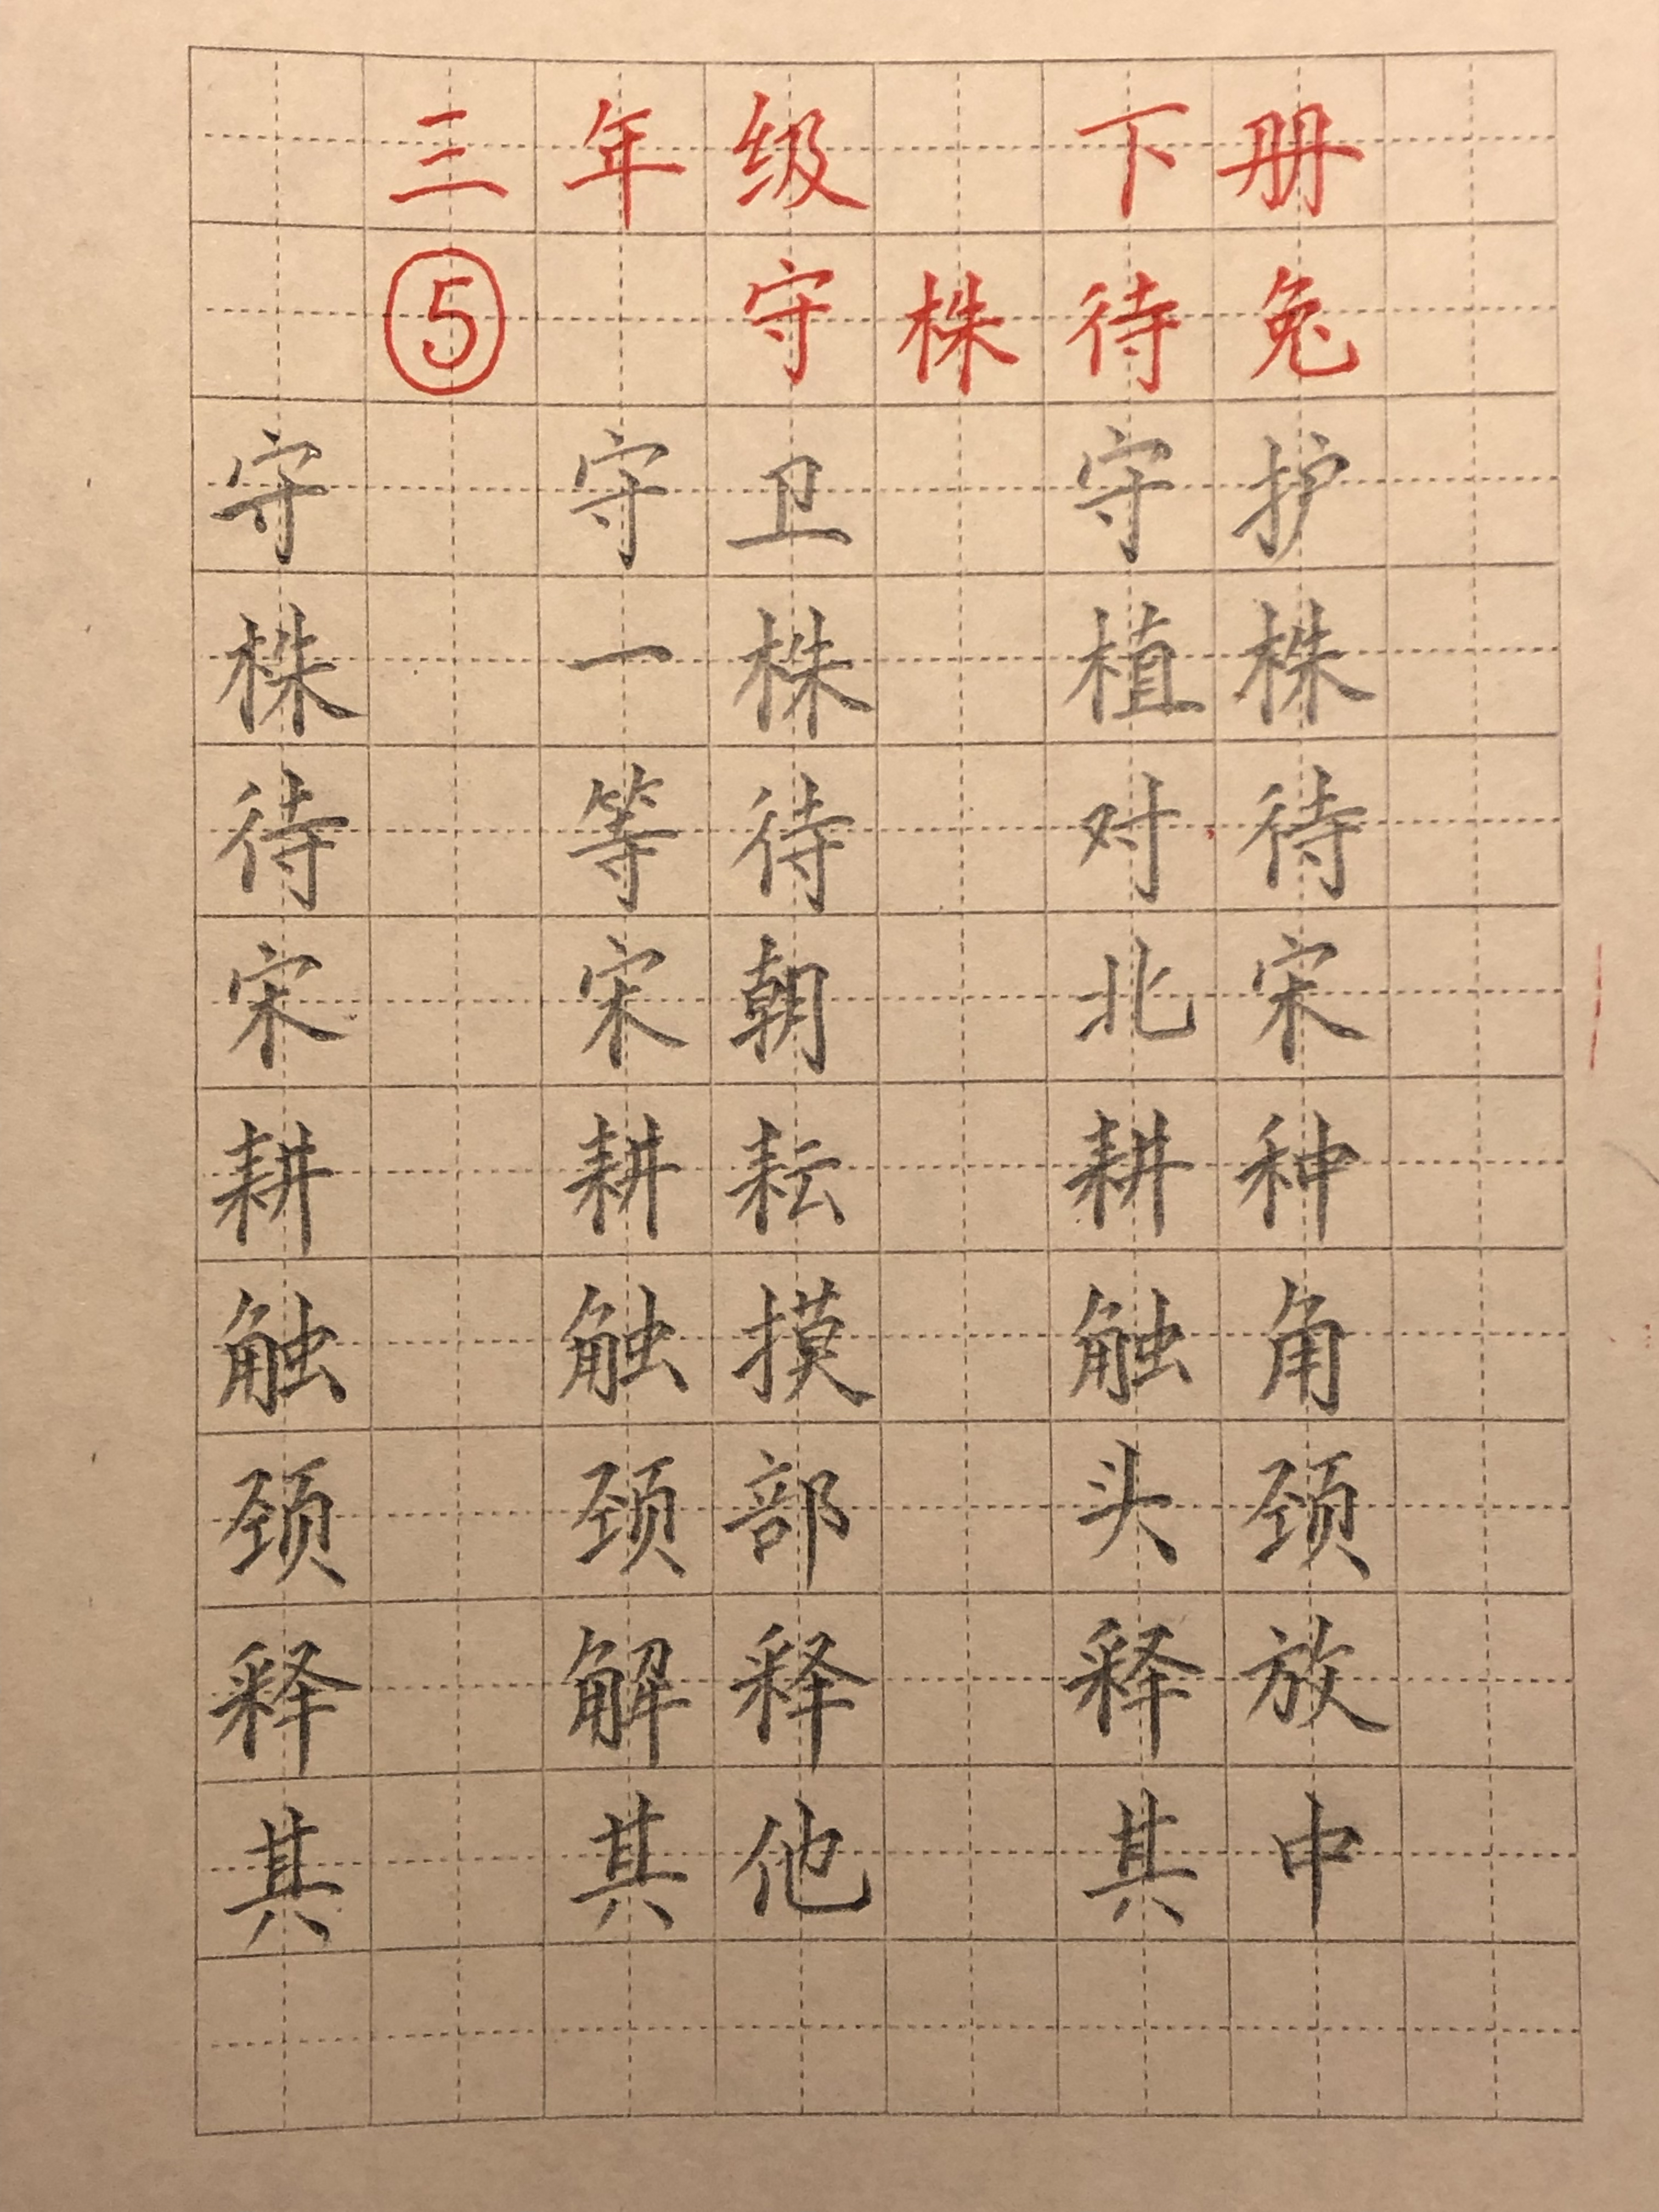 三年级 下册
⑤ 守株待兔
守 守卫 守护
株 一株 植株
待 等待 对待
宋 宋朝 北宋
耕 耕耘 耕种
触 触摸 触角
颈 颈部 头颈
释 解释 释放
其 其他 其中